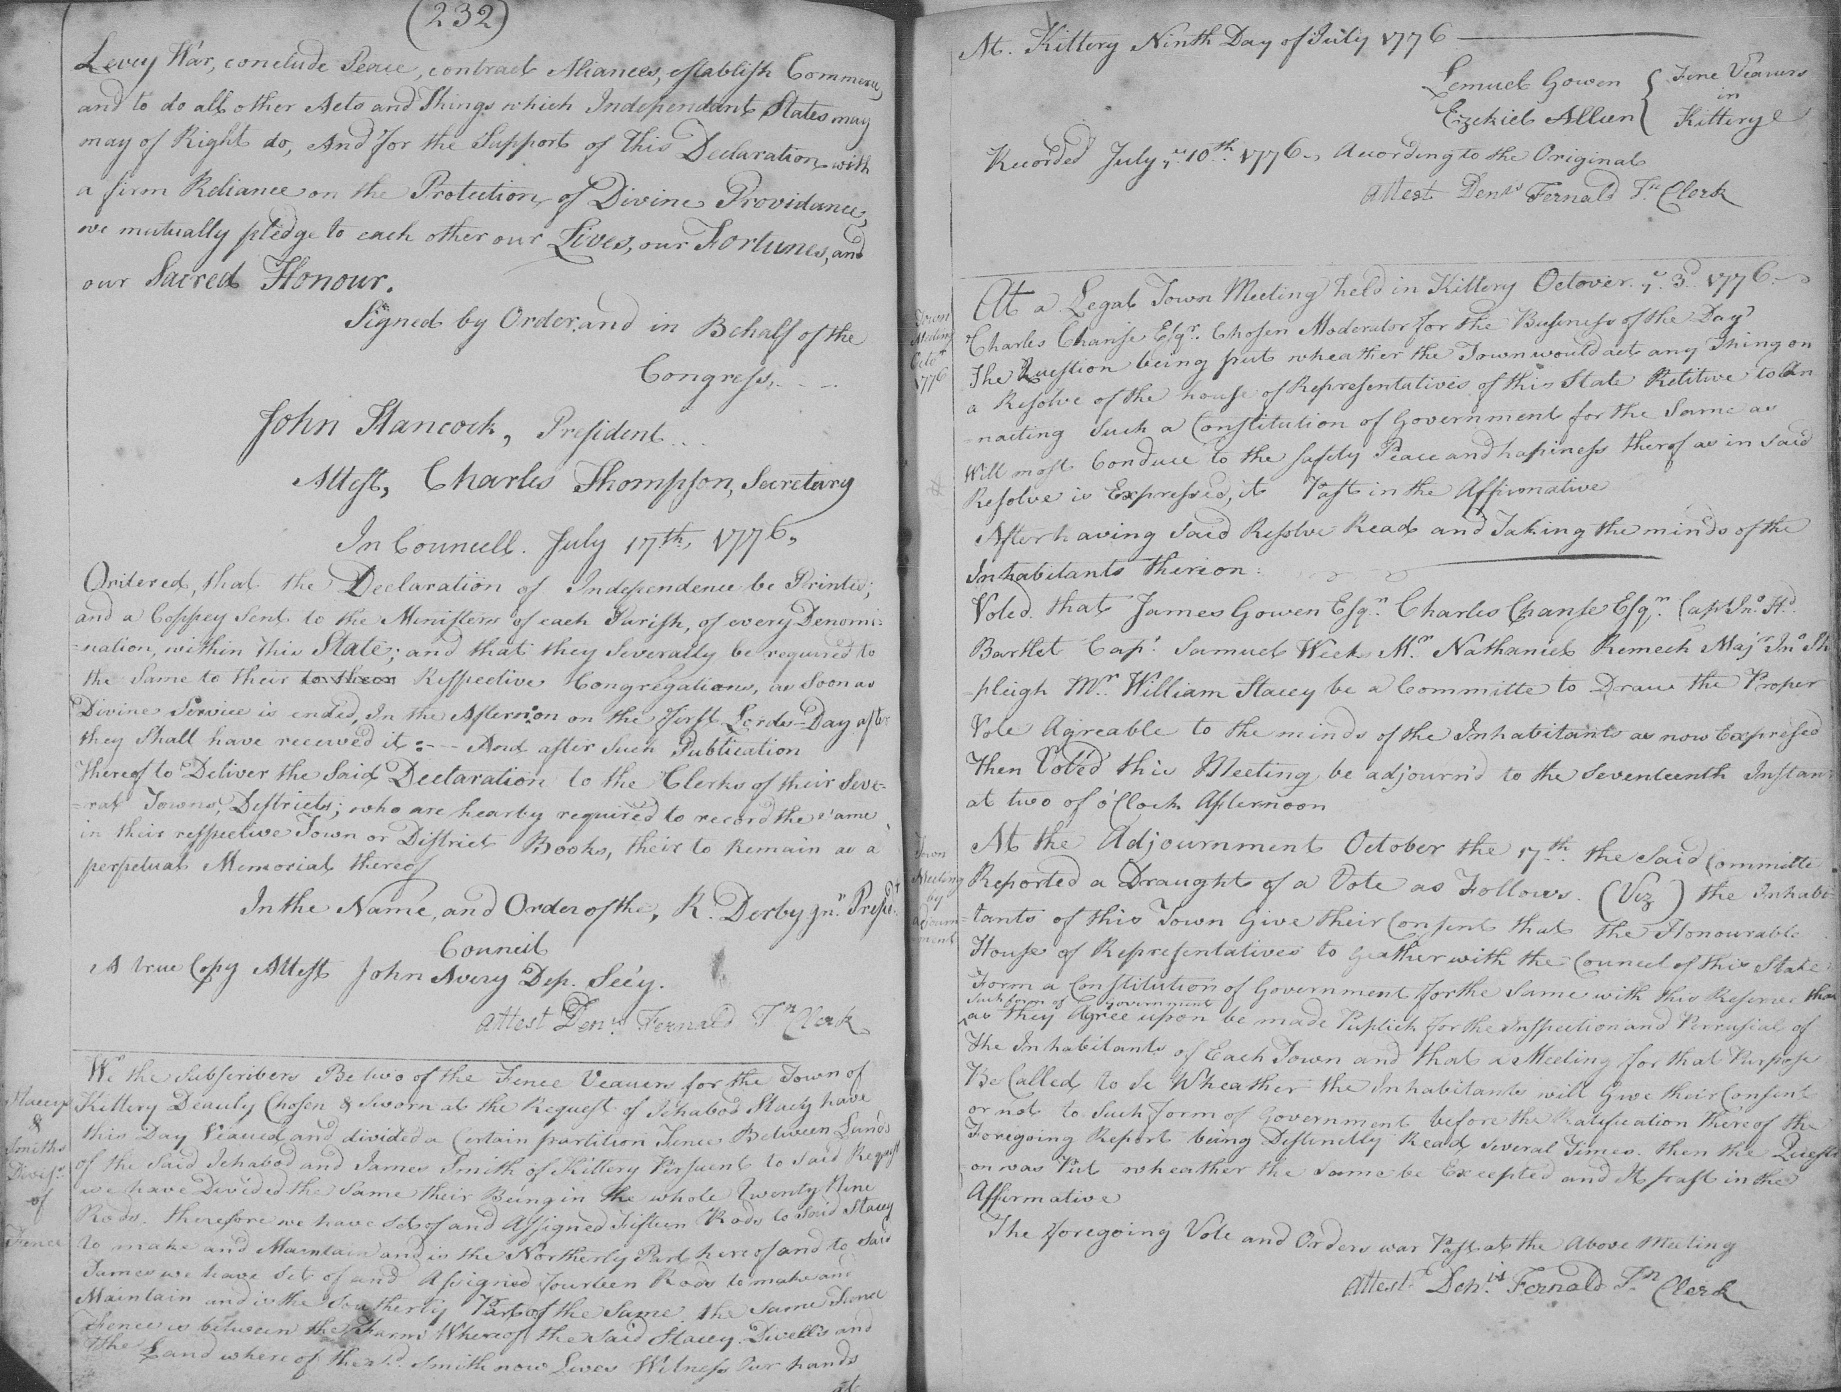 (232)
Levey War, conclude Peace, contract Aliances, establish Commerce,
and to do all other Acts and Things which Independant States may
may of Right do, And for the Support of this Declaration, with
a firm Reliance on the Protection, of Divine Providence,
we mutually pledge to each other our Lives, our Fortunes, and
our Sacred Honour.
Signed by Order, and in Behalf of the
Congress, - - -
John Hancock, President - -
Attest, Charles Thompson, Secretary
In Councell. July 17th, 1776,
Ordered, that the Declaration of Independence be Printed;
and a Coppey Sent to the Ministers of each Parish, of every Denomi:
-nation, within this State; and that they Severally be required to
the Same to their to their Respective Congregations, as Soon as
Divine Service is ended, In the Afternoon on the first Lords-Day after
they Shall have received it :- - - And after Such Publication
thereof to Deliver the Said Declaration to the Clerks of their Seve-
-ral Towns, Districts; who are hearby required to record the Same
in their respective Town or District Books, their to Remain as a
perpetual Memorial thereof
In the Name, and Order of the, R. Derby Jnr. Presidt
Council
A true Copy Attest John Avery Dep. Secy.
Attest Dens Fernald Tn Clerk
Stacey
&
Smiths
Divisn
of
Fence
We the Subscribers Be two of the Fence Veauers for the Town of
Kittery Deauly Chosen & Sworn at the Request of Ichabod Stacey have
this Day Veaued and divided a Certain partition Fence Between Lands
of the Said Ichabod and James Smith of Kittery Persuent to Said Request
we have Divided the Same their Being in the whole Twenty Nine
Rods. therefore we have Set of and Assigned Fifteen Rods to Said Stacey
to make and Maintain and is the Northerly Part hereof and to Said
James we have Set of and Assigned fourteen Rods to make and
Maintain and is the Southerly Part of the Same. the Same
Fence is between the Farm Whereof the Said Stacey Dwells and
the Land where of the sd. Smith now Lives Witness Our hands
at
At. Kittery Ninth Day of July 1776
Lemuel Gowen { Fence Veauers
in
Ezekiel Allien { Kittery
Recorded July ye 10th. 1776 - According to the Original
Attest Dens Fernald Tn Clerk
Town
Meeting
Octor
1776
At a Legal Town Meeting held in Kittery Octover ye 3d 1776
Charles Chanse Esqr. Chosen Moderator for the Business of the Day
The Question being put wheather the Town would act any Thing on
a Resolve of the house of Representatives of this State Reletive to En
-nacting Such a Constitution of Government for the Same as
Will most Conduce to the Safety Peace and hapiness therof as in Said
Resolve is Expressed, it Past in the Affirmative
After having Said Resolve Read and Taking the minds of the
Inhabitants thereon:
Voted. that James Gowen Esqr. Charles Chanse Esqr. Capt Jno. Hd.
Bartlet Capt. Samuel Week Mr. Nathaniel Remech Majr Jno Sh
-pleigh Mr. William Stacey be a Committe to Draw the Proper
Vote Agreable to the minds of the Inhabitants as now Expresed
Then Voted this Meeting be adjourn'd to the Seventeenth Instan
at two of o'Clock Afternoon
Town
Meeting
by
adjourn
ment
At the Adjournment October the 17th. the Said Committe
Reported a Draught of a Vote as Follows. (Viz) the Inhabi-
-tants of this Town Give their Consent that the Honourable
House of Representatives to Geather with the Councel of this State
Form a Constitution of Government for the Same with this Reserve that
Such form of Government
as they Agree upon be made Puplick for the Inspection and Perrusial of
the Inhabitants of Each Town and that a Meeting for that Purpose
Be Called to Se Wheather the Inhabitants will Give their Consent
or not to Such form of Government before the Ratification thereof the
Foregoing Report being Distinctly Read Several Times. then the Questi
-on was Put wheather the Same be Excepted and It past in the
Affirmative
The foregoing Vote and Orders war Past at the Above Meeting
Attest Dens Fernald Tn Clerk